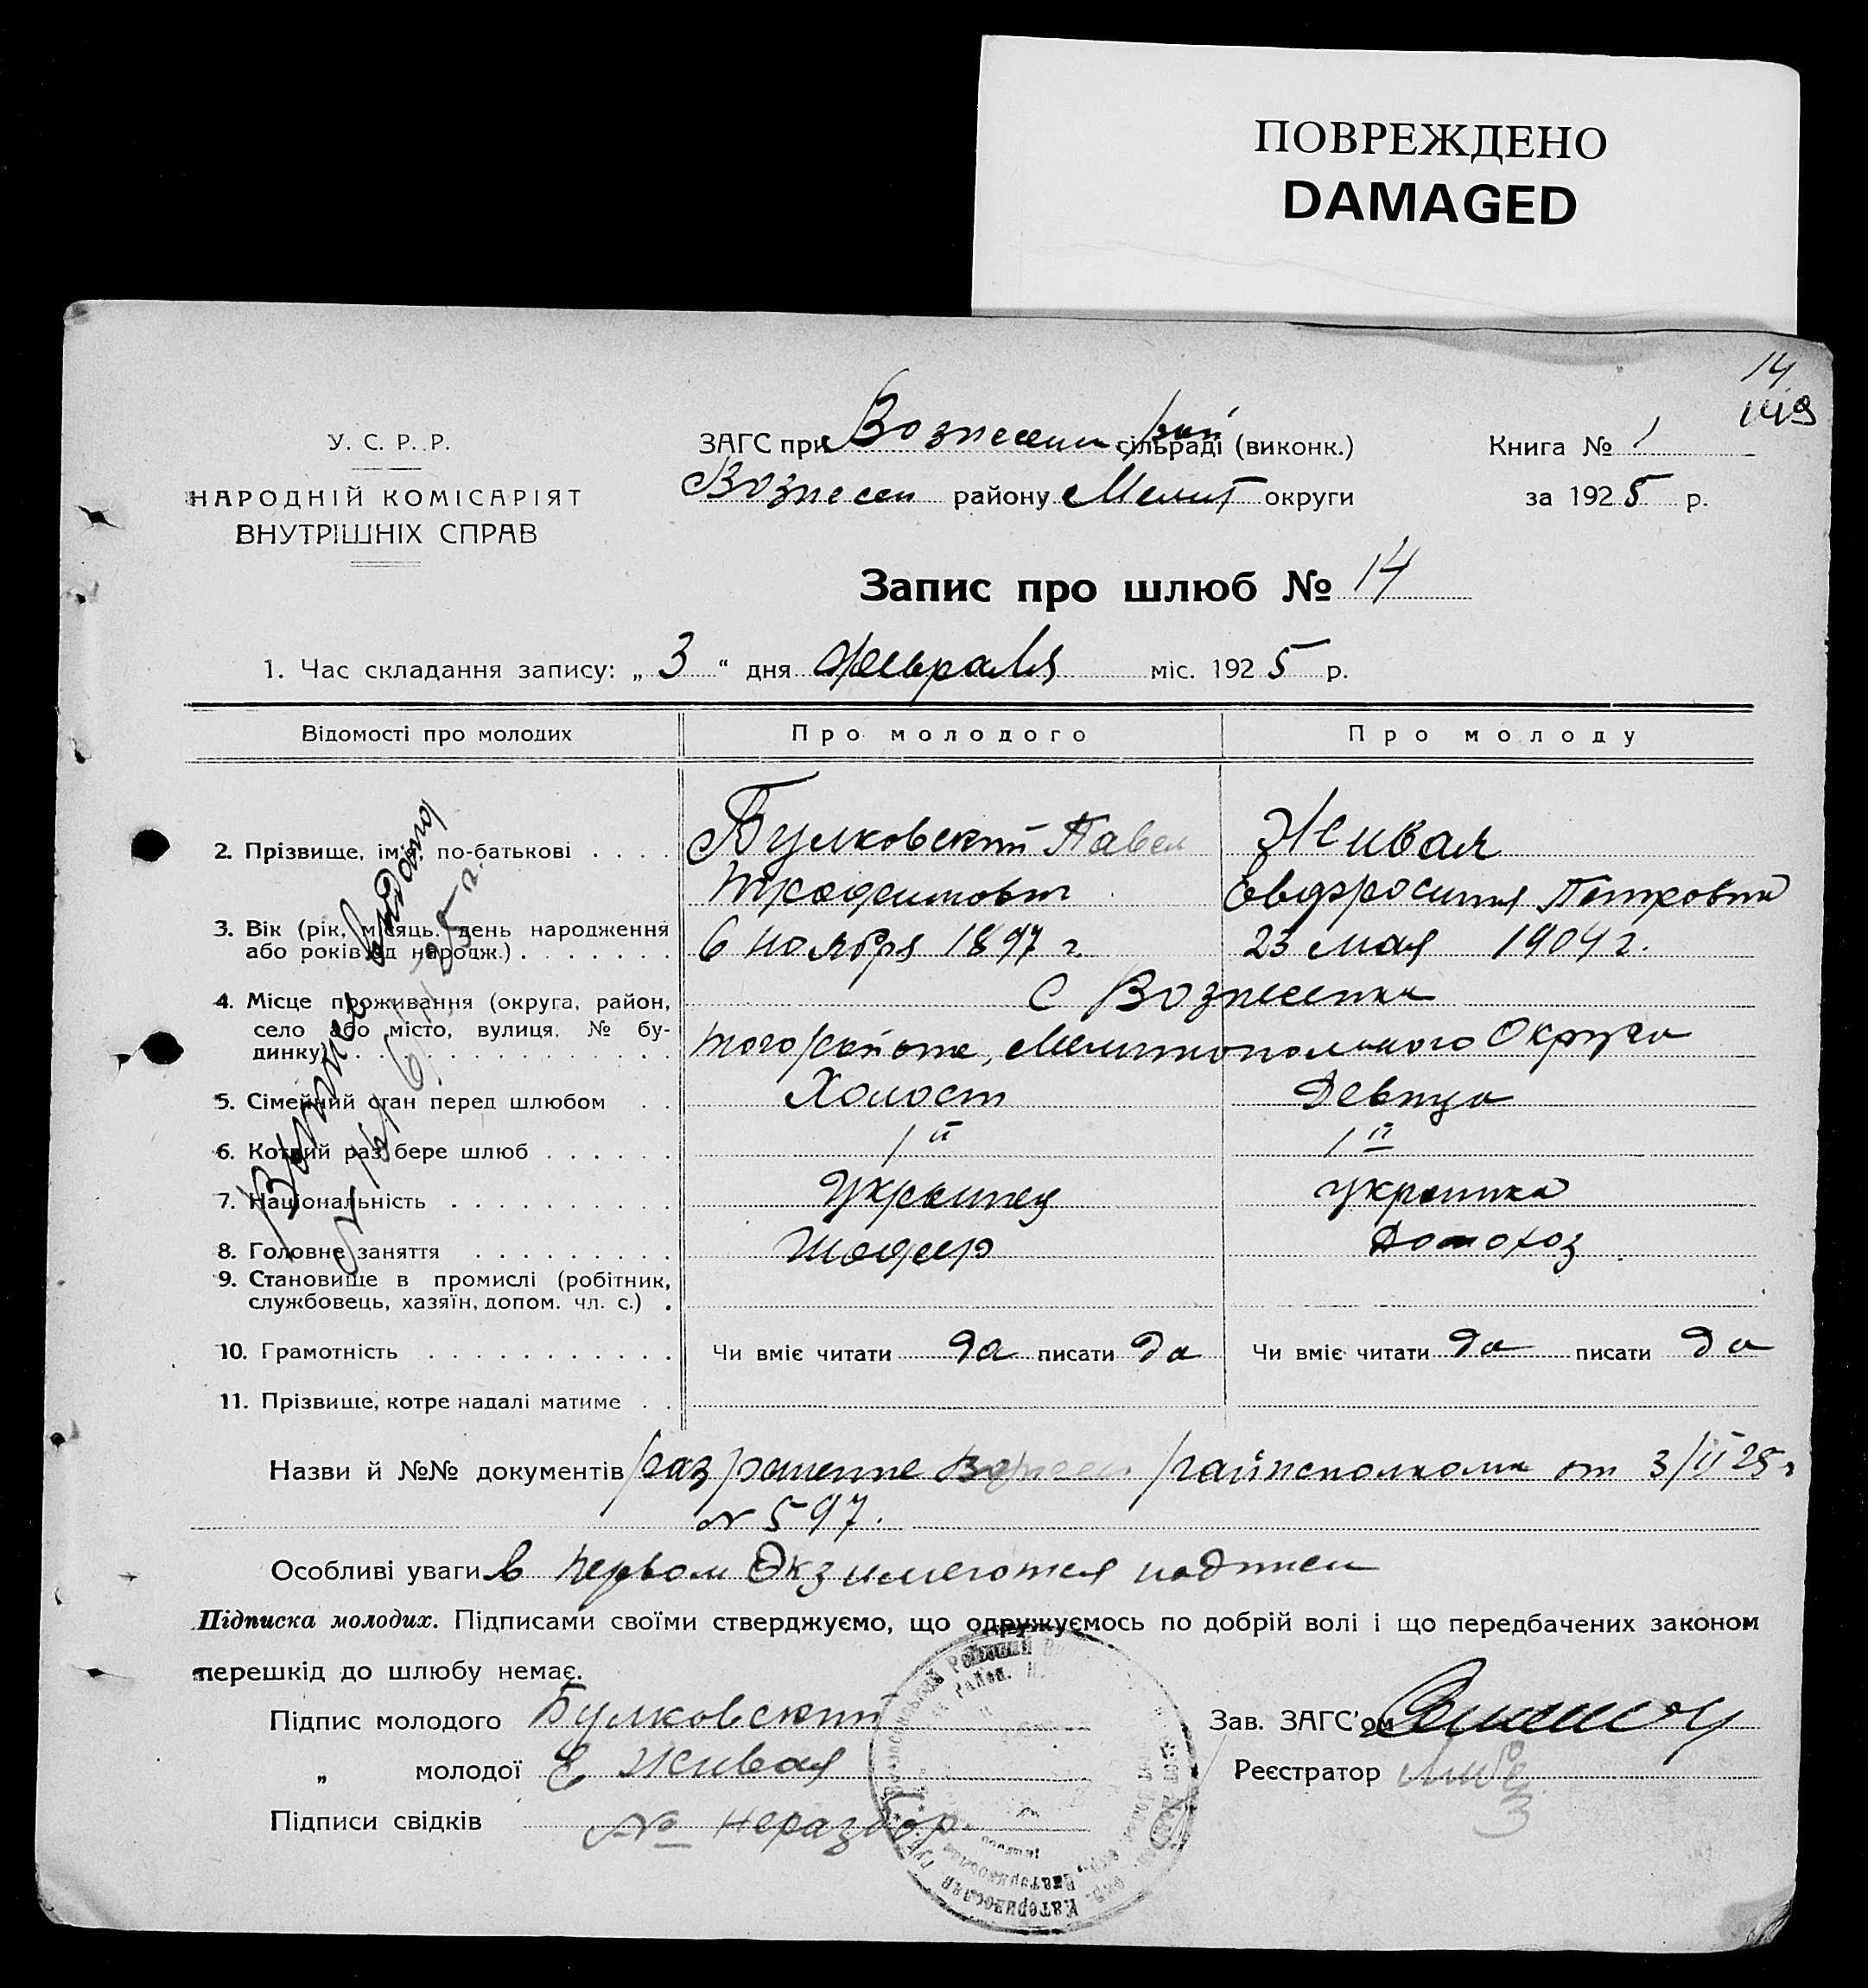 ПОВРЕЖДЕНО
DAMAGED
14
У. С. Р. Р.
НАРОДНІЙ КОМІСАРІЯТ
ВНУТРІШНІХ СПРАВ
ЗАГС при Вознесенск рай сільраді (виконк.)
Вознесен району Мелит округи
Книга № 1
за 1925 р.
Запис про шлюб № 14
1. Час складання запису: „ 3 “ дня февраля міс. 1925 р.
Відомості про молодих Про молодого Про молоду
2. Прізвище, ім'я, по-батькові . . . . Булковский Павел Живая
Трофимович Евдросиния Петровна
3. Вік (рік, місяць, день народження
або років від народж.) . . . . . . . 6 ноября 1897 г. 23 мая 1904 г.
4. Місце проживання (округа, район, С Вознесенка
село або місто, вулиця, № бу-
динку) . . . . . . . . . . . . . того района, Мелитопольского Округа
5. Сімейний стан перед шлюбом . . Холост Девица
6. Котрий раз бере шлюб . . . . . . 1й 1й
7. Національність . . . . . . . . . . Украинец украинка
8. Головне заняття . . . . . . . . . Шофер Домохоз
9. Становище в промислі (робітник,
службовець, хазяїн, допом. чл. с.) .
10. Грамотність . . . . . . . . . . . Чи вміє читати да писати да Чи вміє читати да писати да
11. Прізвище, котре надалі матиме . .
Выпись выдана
6/II 25 г.
Назви й №№ документів разрешение Вознесен райисполкома от 3/II 25 г
№ 597.
Особливі уваги в первом Экз имеются подписи
Підписка молодих. Підписами своїми стверджуємо, що одружуємось по добрій волі і що передбачених законом
перешкід до шлюбу немає.
Підпис молодого Булковский
„ молодої Е Живая
Підписи свідків № Неразбор.
Зав. ЗАГС'ом
Реєстратор